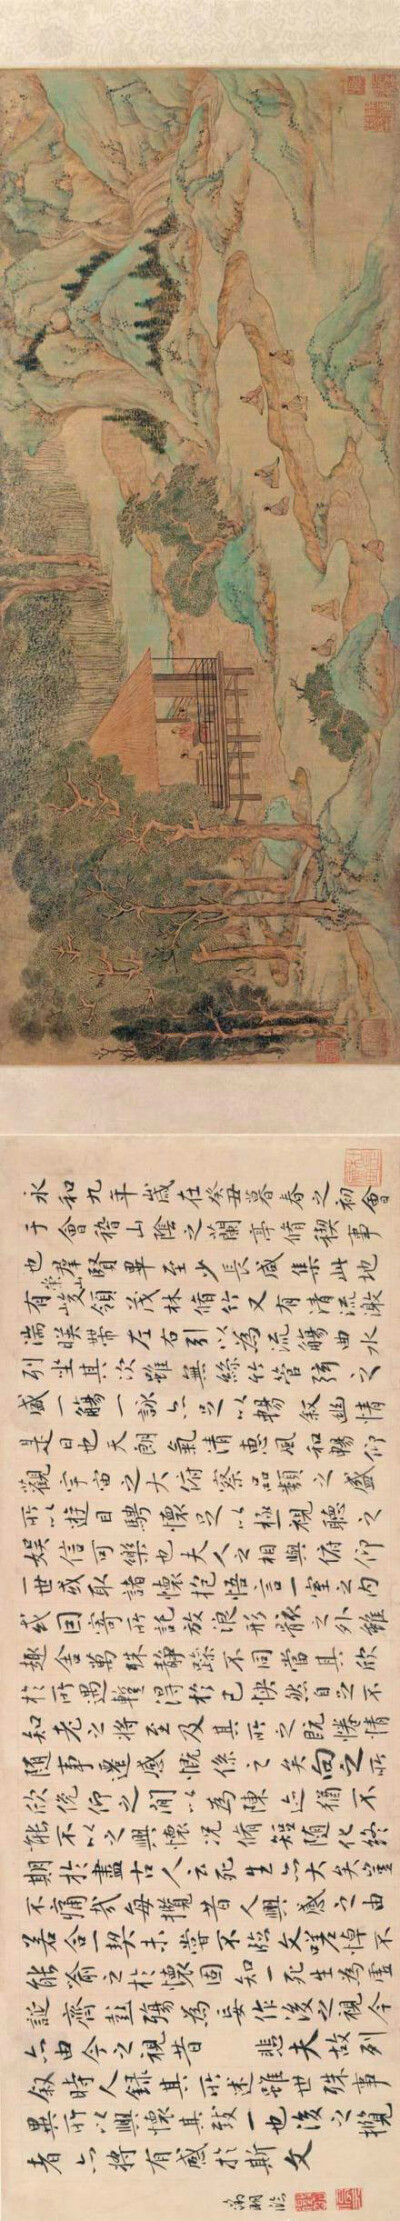 永和九年歲在癸丑暮春之初會
于會稽山陰之蘭亭脩稧事
也群賢畢至少長咸集此地
有崇山峻領茂林脩竹又有清流激
湍暎帶左右引以為流觴曲水
列坐其次雖無絲竹管弦之
盛一觴一詠亦足以暢叙幽情
是日也天朗氣清惠風和暢仰
觀宇宙之大俯察品類之盛
所以遊目騁懷足以極視聽之
娛信可樂也夫人之相與俯仰
一世或取諸懷抱悟言一室之內
或因寄所託放浪形骸之外雖
趣舍萬殊靜躁不同當其欣
於所遇暫得於己怏然自足不
知老之將至及其所之既惓情
隨事遷感慨係之矣向之所
欣俛仰之間以為陳迹猶不
能不以之興懷況脩短隨化終
期於盡古人云死生亦大矣豈
不痛哉每攬昔人興感之由
若合一契未嘗不臨文嗟悼不
能喻之於懷固知一死生為虛
誕齊彭殤為妄作後之視今
亦由今之視昔悲夫故列
叙時人錄其所述雖世殊事
異所以興懷其致一也後之攬
者亦將有感於斯文
徵明臨